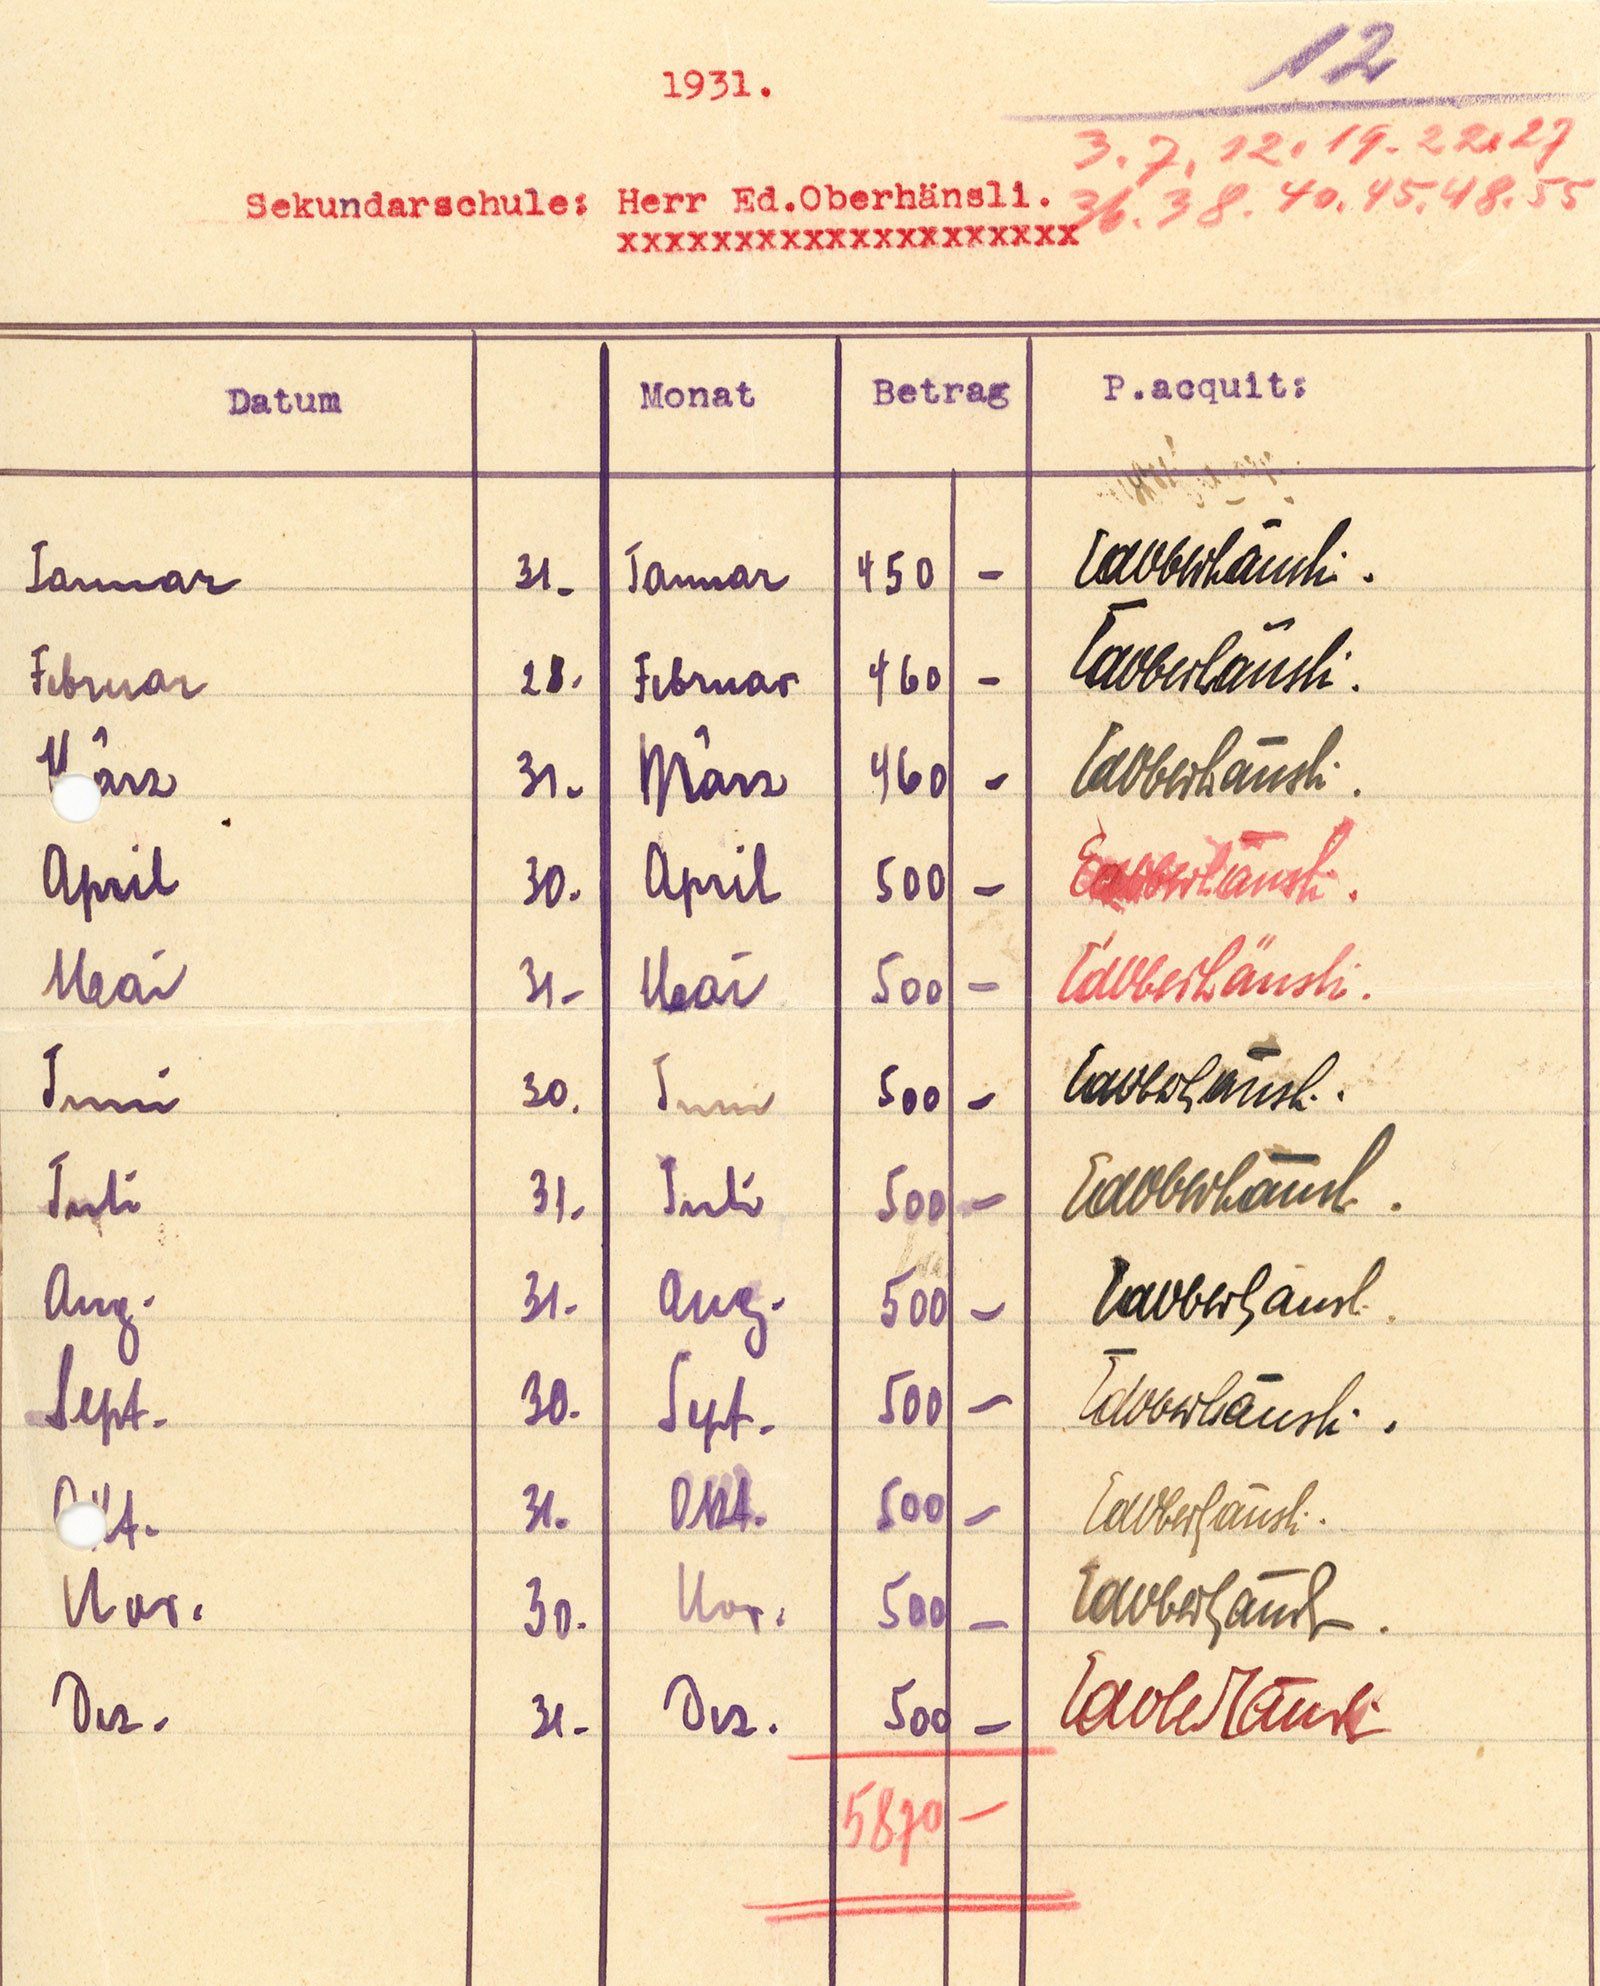 12
1931.
3. 7. 12. 19. 22. 27
Sekundarschule: Herr Ed.Oberhänsli.
36. 38. 40. 45. 48. 55
xxxxxxxxxxxxxxxxxxxx
Datum Monat Betrag P.acquit:
Januar 31. Januar 450 – EdOberhänsli.
Februar 28. Februar 460 – EdOberhänsli.
März 31. März 460 – EdOberhänsli.
April 30. April 500 – EdOberhänsli.
Mai 31. Mai 500 – EdOberhänsli.
Juni 30. Juni 500 – EdOberhänsli.
Juli 31. Juli 500 – EdOberhänsli.
Aug. 31. Aug. 500 – EdOberhänsli.
Sept. 30. Sept. 500 – EdOberhänsli.
Okt. 31. Okt. 500 – EdOberhänsli.
Nov. 30. Nov. 500 – EdOberhänsli.
Dez. 31. Dez. 500 – EdOberhänsli
5870 –